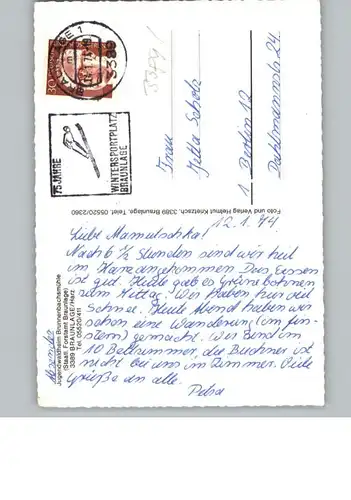 BRAUNLAGE 1
3389
30
75 JAHRE
WINTERSPORTPLATZ
BRAUNLAGE
Frau
Jutta Scholz
1 Berlin 12
Dahlmannstr. 24
Foto und Verlag Helmut Knetzsch, 3389 Braunlage, Telef. 05520/2360
Absender
Jugendwaldheim Brunnenbachsmühle
(Staatl. Forstamt Braunlage)
3389 BRAUNLAGE/Harz
Tel. 05520/411
12.1.74
Liebe Mamutschka!
Nach 6 1/2 Stunden sind wir heil
im Harz angekommen. Das Essen
ist gut. Heute gab es Grüne bohnen
zum Mittag. Wir haben hier viel
Schnee. Heute Abend haben wir
schon eine Wanderung (im fin-
stern) gemacht. Wir sind im
10 Bettzimmer, die Buchner ist
nicht bei uns im Zimmer. Viele
Grüße an alle.
Petra